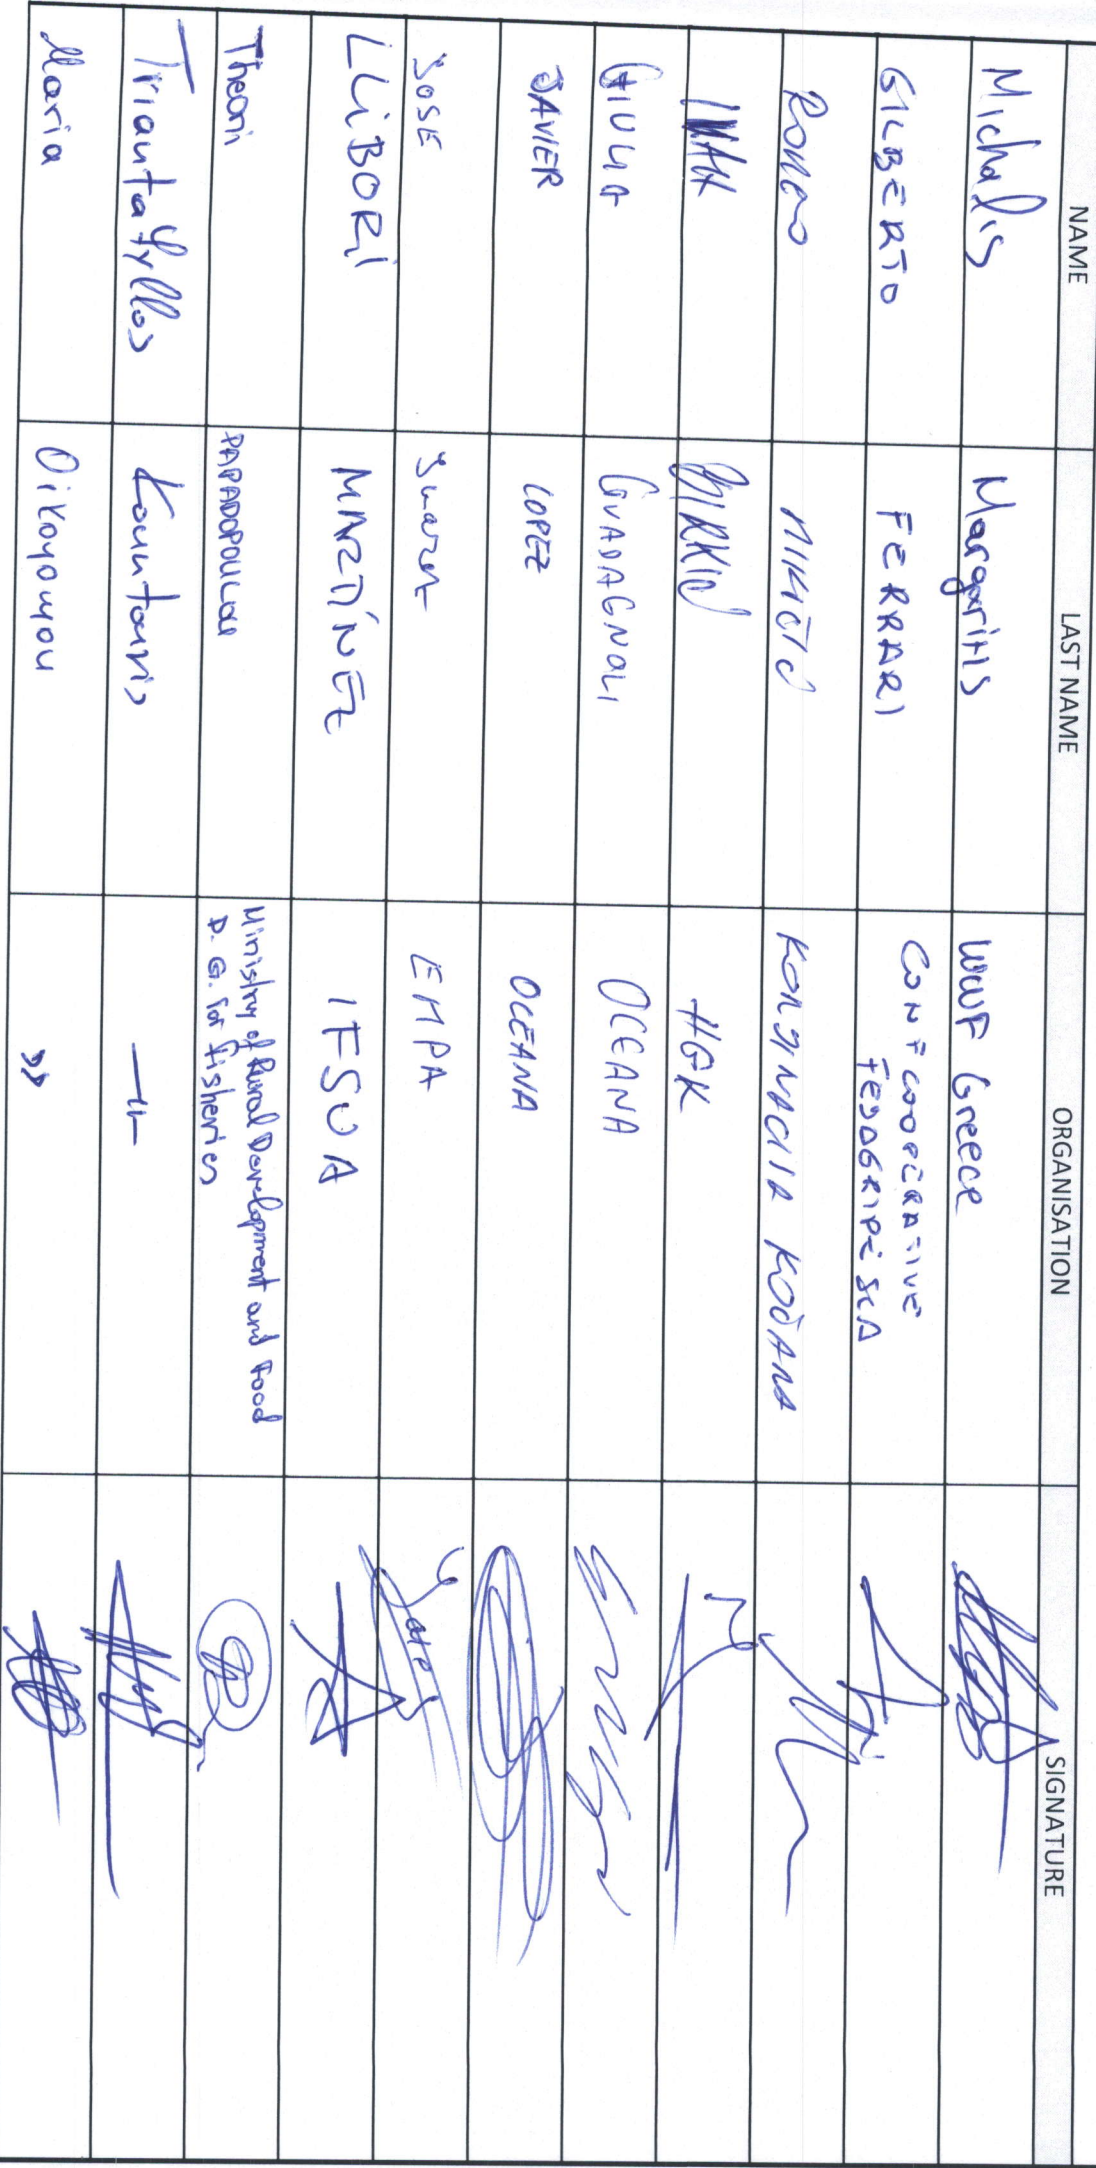 NAME LAST NAME ORGANISATION SIGNATURE
Michalis Margaritis WWF Greece
GILBERTO FERRARI CONFCOOPERATIVE
FEDAGRIPESCA
ROMEO MIKIĆIĆ KOČARA
HGK
GIULIA GUADAGNOLI OCEANA
JAVIER LOPEZ OCEANA
JOSE Suarez EMPA
LLIBORI MARTÍNEZ IFSUA
Theoni PAPADOPOULOU Ministry of Rural Development and Food
D. G. for fisheries
Triantafyllos Kountouris —||—
Maria Oikonomou »